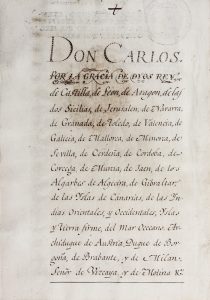 DON CARLOS.
POR LA GRACIA DE DYOS REY
de Castilla, de Leon, de Aragon, de las
dos Sicilias, de Jerusalen, de Navarra,
de Granada, de Toledo, de Valencia, de
Galicia, de Mallorca, de Menorca, de
Sevilla, de Cerdeña, de Cordoba, de
Corcega, de Murcia, de Jaen, de los
Algarbes de Algecira, de Gibraltar,
de las Yslas de Canarias, de las Yn
dias Orientales, y Occidentales, Yslas
y tierra firme, del Mar Oceano, Ar
chiduque de Austria, Duque de Bor
goña, de Brabante, y de Milan,
Señor de Vizcaya, y de Molina &c.